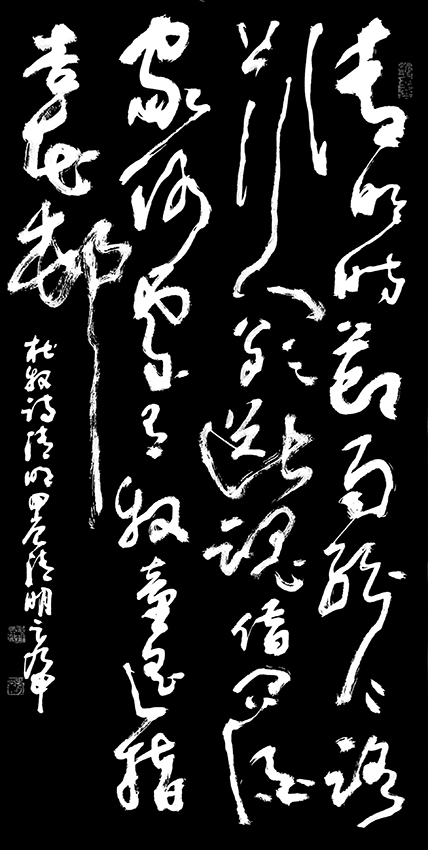 清明时节雨纷纷路
上行人欲断魂借问酒
家何处有牧童遥指
杏花村
杜牧诗清明甲辰清明